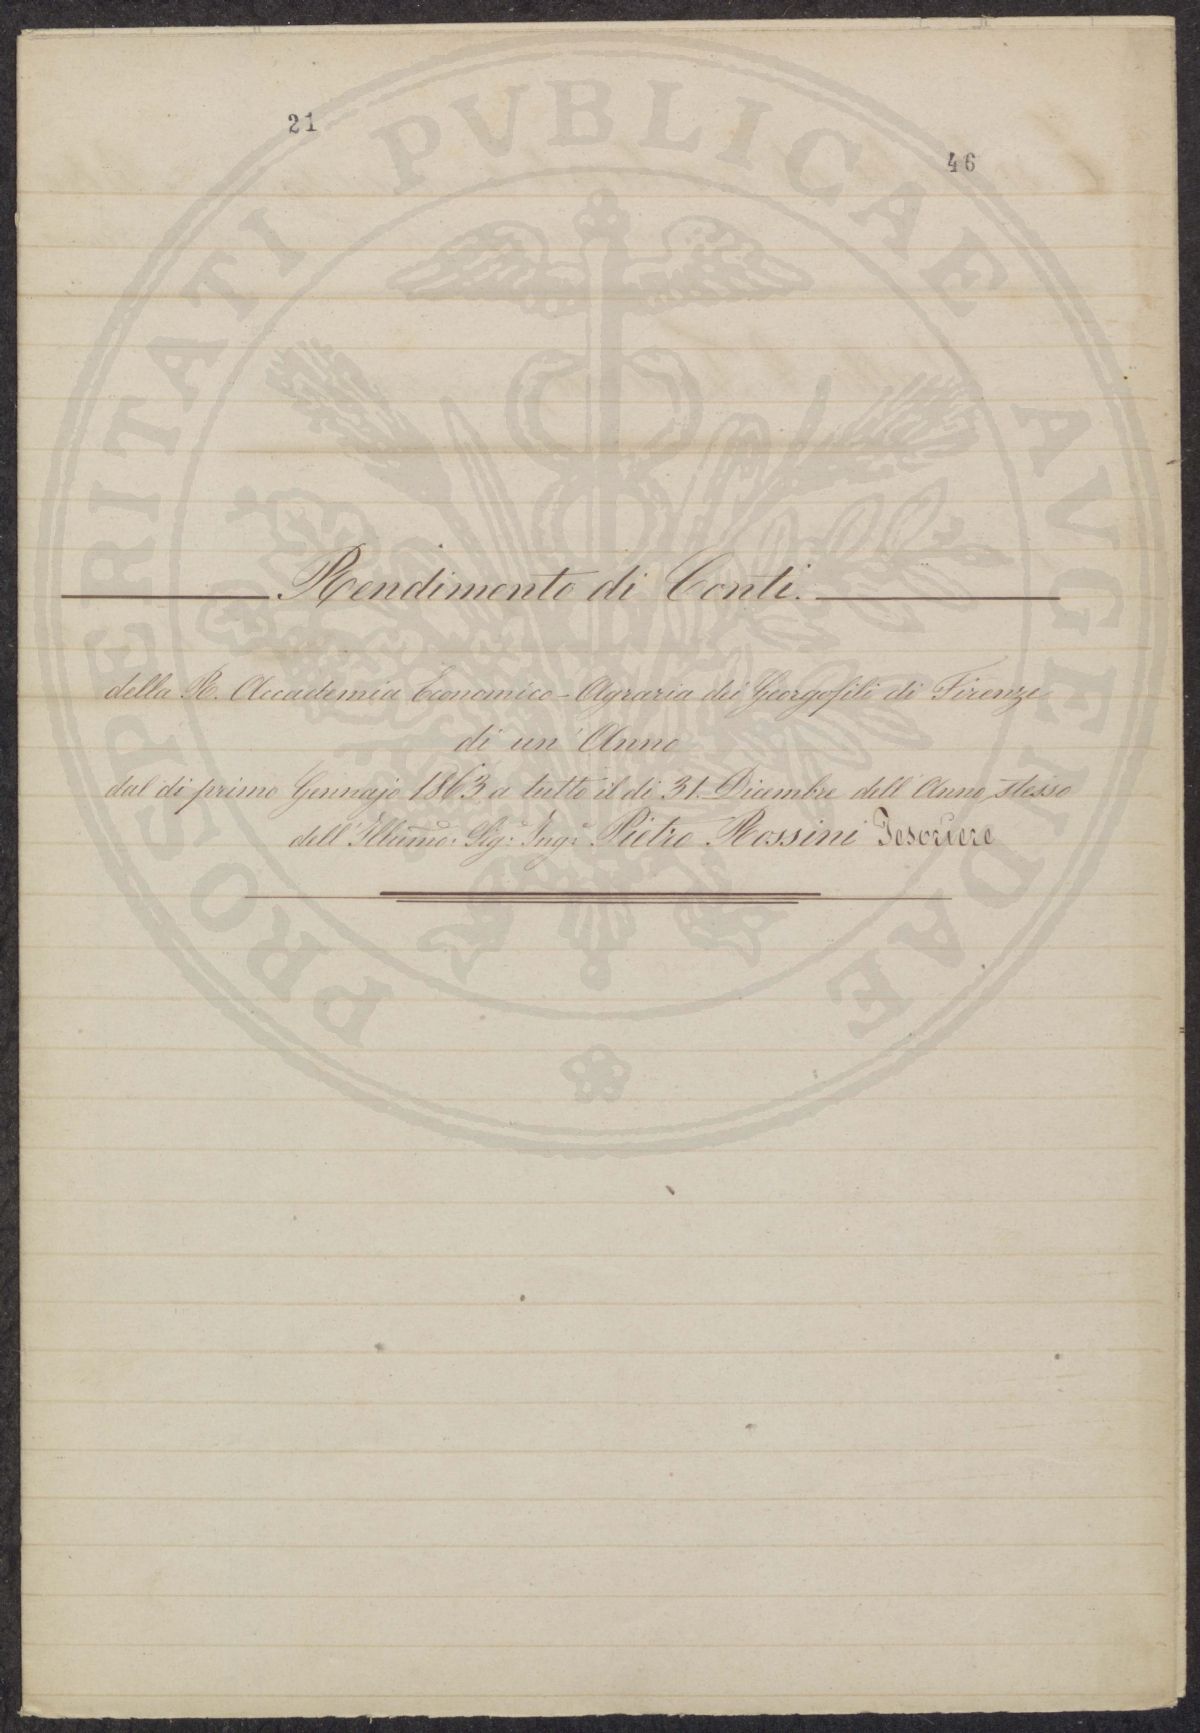 21
46
PROSPERITATI PVBLICAE AVGENDAE
Rendimento di Conti.
della R. Accademia Economico-Agraria dei Georgofili di Firenze
di un' Anno
dal dì primo Gennajo 1863 a tutto il dì 31. Dicembre dell' Anno stesso
dell' Illumo: Sigr: Ingr: Pietro Rossini Tesoriere